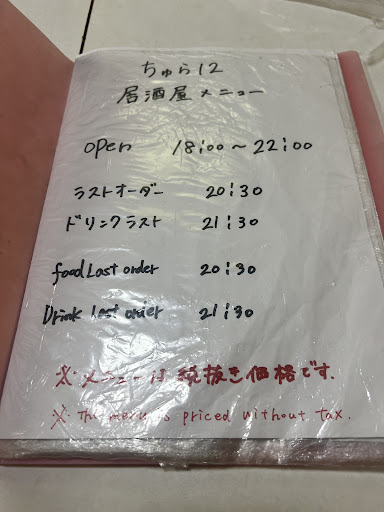 ちゅら12
居酒屋メニュー
open 18:00～22:00
ラストオーダー 20:30
ドリンクラスト 21:30
food Last order 20:30
Drink Last order 21:30
※メニューは税抜き価格です.
※ The menu is priced without tax.